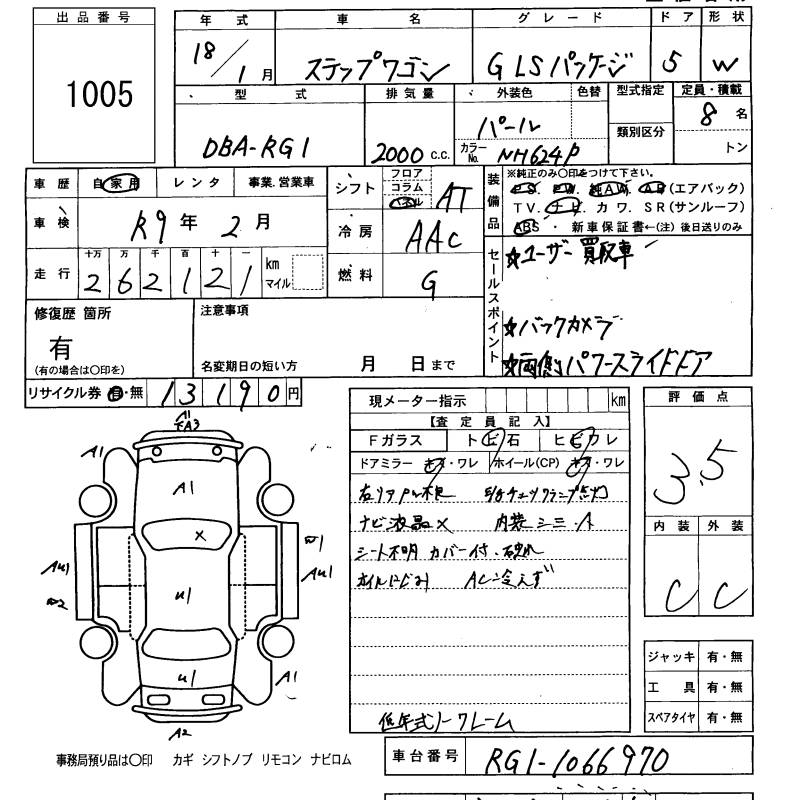 出品番号
1005
年式 車名 グレード ドア 形状
18/1月 ステップワゴン G LSパッケージ 5 W
型式 排気量 外装色 色替 型式指定 定員・積載
DBA-RG1 2000 C.C. パール カラーNo. NH624P 類別区分 8名
トン
車歴 自家用 レンタ 事業.営業車
シフト フロア コラム AT
装備品 ※純正のみ〇印をつけて下さい。
P.S. P.W. 純A.W. A.B(エアバック)
TV. ナビ カワ. SR(サンルーフ)
ABS ・ 新車保証書←(注)後日送りのみ
車検 R9年2月
冷房 AAC
走行 十万 万 千 百 十 一 km マイル
262121
燃料 G
セールスポイント
☆ユーザー買取車
☆バックカメラ
☆両側パワースライドドア
修復歴 箇所
有
(有の場合は〇印を)
注意事項
名変期日の短い方 月 日まで
リサイクル券 有・無 13190円
現メーター指示 km
【査定員記入】
Fガラス トビ石 ヒビワレ
ドアミラー キズ・ワレ ホイール(CP) キズ・ワレ
ナビ液晶× 内装シミ・A
シート不明 カバー付・
ACー冷えず
低年式ノークレーム
評価点
3.5
内装 外装
C C
ジャッキ 有・無
工具 有・無
スペアタイヤ 有・無
A1
A1
A1
X
U1
AU1
AU1
U1
A1
A2
事務局預り品は〇印 カギ シフトノブ リモコン ナビロム
車台番号 RG1-1066970